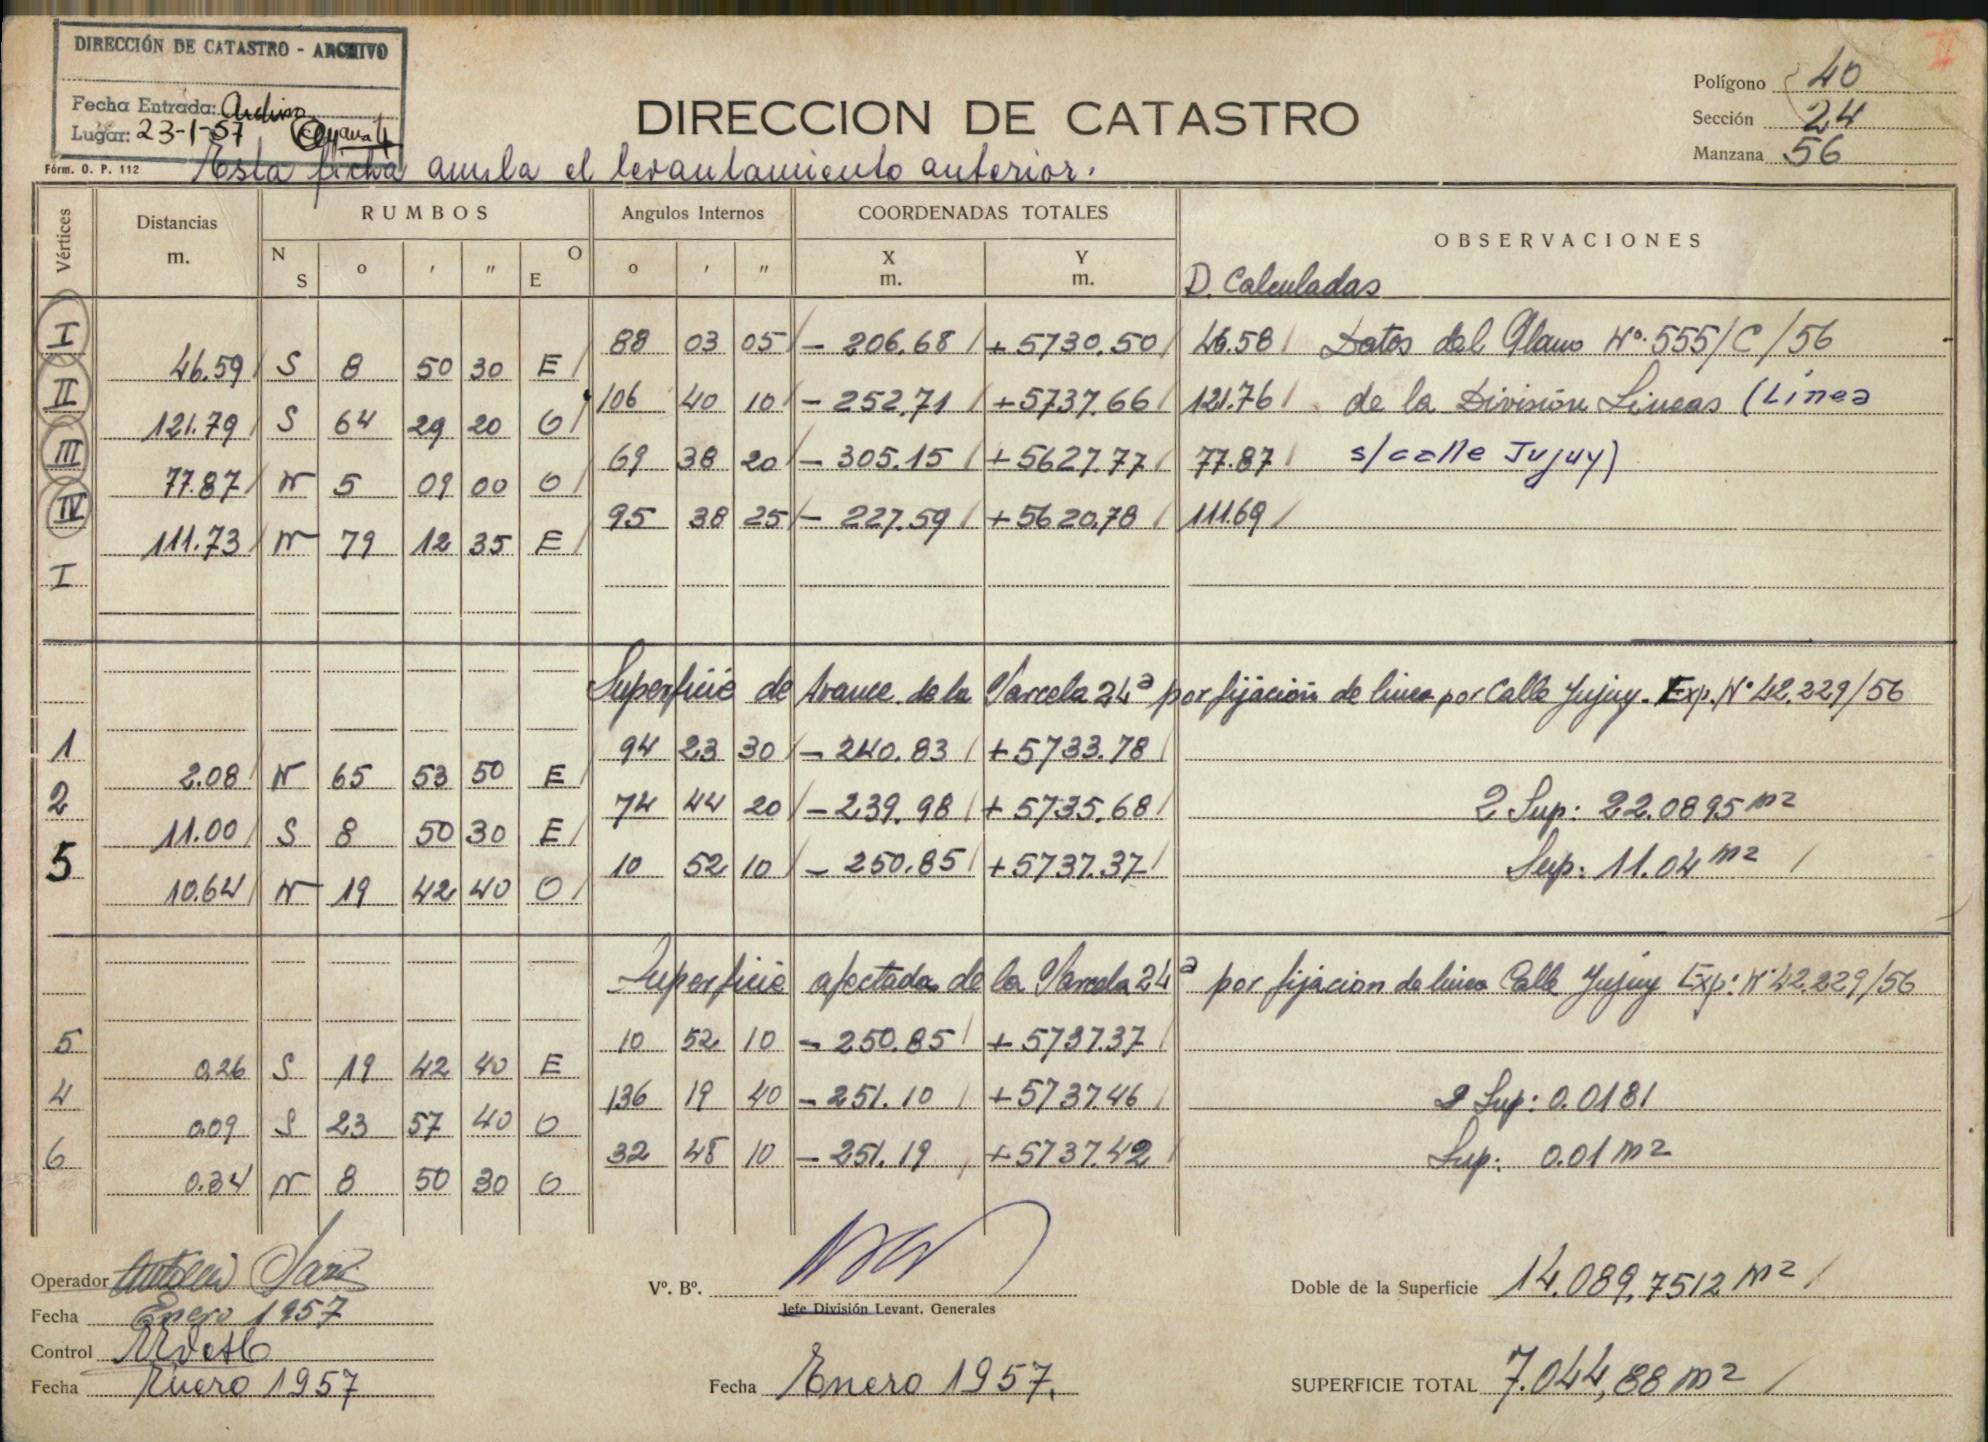 DIRECCIÓN DE CATASTRO - ARCHIVO
Fecha Entrada: Archivo
Lugar: 23-1-57
Fórm. O. P. 112
Esta ficha anula el levantamiento anterior.
DIRECCION DE CATASTRO
Polígono 40
Sección 24
Manzana 56
II
Vértices Distancias m. RUMBOS Angulos Internos COORDENADAS TOTALES OBSERVACIONES
N S o ' " O E o ' " X m. Y m. D. Calculadas
I 88 03 05 - 206.68 + 5730.50 46.58 Datos del Plano Nº 555/C/56
46.59 S 8 50 30 E
II 106 40 10 - 252.71 + 5737.66 121.76 de la División Lineas (Línea
121.79 S 64 29 20 O
III 69 38 20 - 305.15 + 5627.77 77.87 s/calle Jujuy)
77.87 N 5 09 00 O
IV 95 38 25 - 227.59 + 5620.78 111.69
111.73 N 79 12 35 E
I
Superficie de avance de la Parcela 24ª por fijación de linea por Calle Jujuy. Exp. Nº 42.229/56
1 94 23 30 - 240.83 + 5733.78
2.08 N 65 53 50 E
2 74 44 20 - 239.98 + 5735.68 2 Sup: 22.0895 m2
11.00 S 8 50 30 E
5 10 52 10 - 250.85 + 5737.37 Sup: 11.04 m2
10.64 N 19 42 40 O
Superficie afectada de la Parcela 24ª por fijacion de linea Calle Jujuy Exp: Nº 42.229/56
5 10 52 10 - 250.85 + 5737.37
0.26 S 19 42 40 E
4 136 19 40 - 251.10 + 5737.46 2 Sup: 0.0181
0.09 S 23 57 40 O
6 32 48 10 - 251.19 + 5737.42 Sup: 0.01 m2
0.34 N 8 50 30 O
Operador
Fecha Enero 1957
Control
Fecha Enero 1957
Vº. Bº.
Jefe División Levant. Generales
Fecha Enero 1957.
Doble de la Superficie 14.089,7512 m2
SUPERFICIE TOTAL 7.044,88 m2